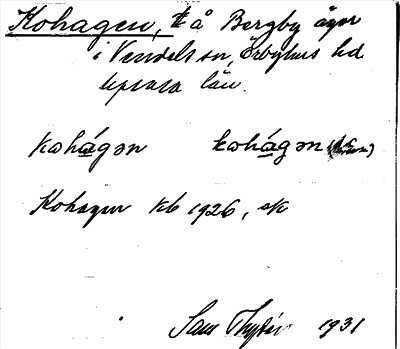 Kohagen, å Bergby ägor
i Vendels sn, Örbyhus hd
Uppsala län.
kohágən kohágən
Kohagen kb 1926, ek
Sam Thydén 1931